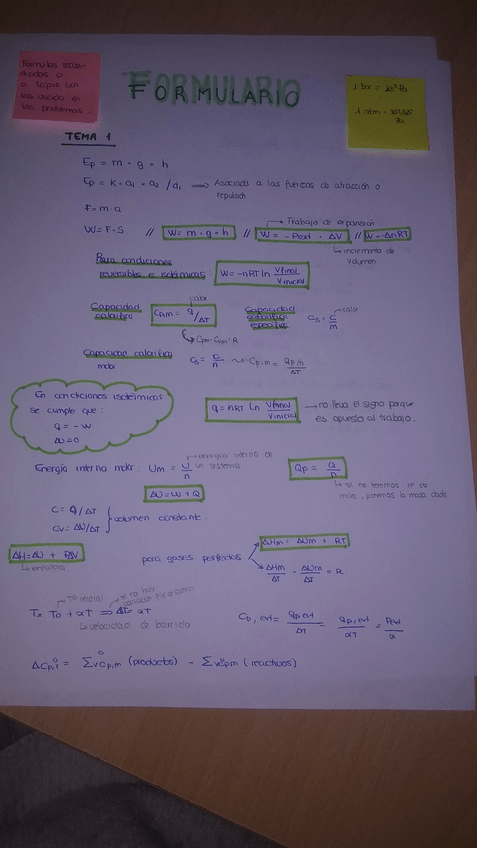 FORMULARIO
Fórmulas
1 bar = 10⁵ Pa
1 atm = 101325 Pa
TEMA 1
Ep = m · g · h
Ep = k · q₁ · q₂ / d, ⟹ Asociada a las fuerzas de atracción o repulsión
F = m · a
W = F · S // W = m · g · h // W = -Pext · ΔV // W = -ΔnRT
Trabajo de expansión
incremento de volumen
Para condiciones
reversibles e isotérmicas: W = -nRT ln Vfinal / Vinicial
Capacidad calorífica Cp,m = q / ΔT
calor
Cpm - Cvm = R
Capacidad calorífica específica Cs = C / m
calor
Capacidad calorífica molar Cs = C / n Cp,m = Qp/n / ΔT
En condiciones isotérmicas
se cumple que:
q = -W
ΔU = 0
q = nRT ln Vfinal / Vinicial → no lleva el signo porque es opuesto al trabajo.
Energía interna molar: Um = U / n
energía interna de un sistema
Qp = Q / n
si no tenemos nº de moles, ponemos la masa dada
ΔU = W + Q
C = Q/ΔT
Cv = ΔU/ΔT } volumen constante.
ΔH = ΔU + PΔV
entalpía
para gases perfectos
ΔHm = ΔUm + RT
ΔHm / ΔT - ΔUm / ΔT = R
T = T₀ + αT ⟹ ΔT = αT
Tª inicial
velocidad de barrido
Cp, ext = Qp, ext / ΔT = Qp, ext / αT = Pext / α
ΔCp,i° = Σν C°p,m (productos) - Σν C°p,m (reactivos)